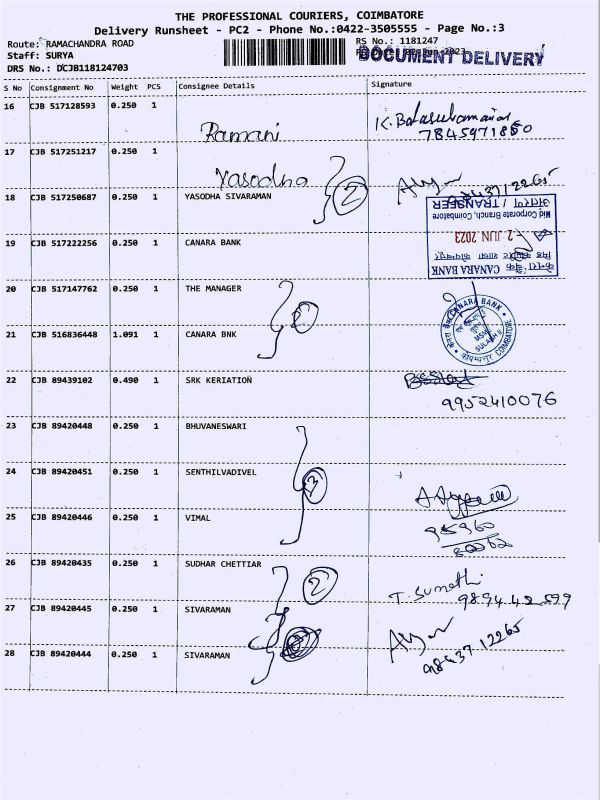 THE PROFESSIONAL COURIERS, COIMBATORE
Delivery Runsheet - PC2 - Phone No.:0422-3505555 - Page No.:3
Route: RAMACHANDRA ROAD
RS No.: 1181247
Staff: SURYA
DOCUMENT DELIVERY
DRS No.: DCJB118124703
S No Consignment No Weight PCS Consignee Details Signature
16 CJB 517128593 0.250 1 Ramani K. Balasubramanian
7845971860
17 CJB 517251217 0.250 1 Yasodha
18 CJB 517250687 0.250 1 YASODHA SIVARAMAN 2
अंतरण / TRANSFER
Mid Corporate Branch, Coimbatore
- 2 JUN 2023
केनरा बैंक CANARA BANK
19 CJB 517222256 0.250 1 CANARA BANK
20 CJB 517147762 0.250 1 THE MANAGER
21 CJB 516836448 1.091 1 CANARA BNK
CANARA BANK
MSME SULABH
COIMBATORE
22 CJB 89439102 0.490 1 SRK KERIATION
9952410076
23 CJB 89420448 0.250 1 BHUVANESWARI
24 CJB 89420451 0.250 1 SENTHILVADIVEL 3
25 CJB 89420446 0.250 1 VIMAL
26 CJB 89420435 0.250 1 SUDHAR CHETTIAR 2 T. Sumathi
27 CJB 89420445 0.250 1 SIVARAMAN
28 CJB 89420444 0.250 1 SIVARAMAN